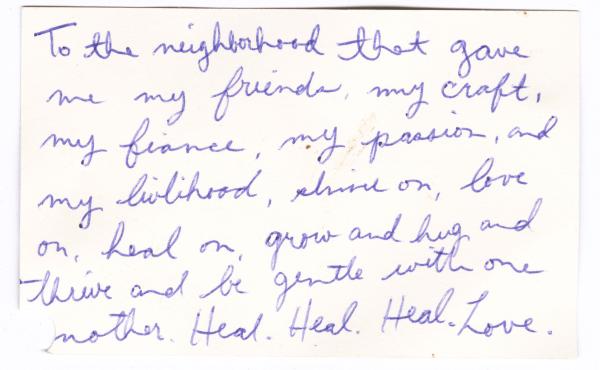 To the neighborhood that gave
me my friends, my craft,
my fiance, my passion, and
my livlihood, shine on, love
on, heal on, grow and hug and
thrive and be gentle with one
nother. Heal. Heal. Heal. Love.